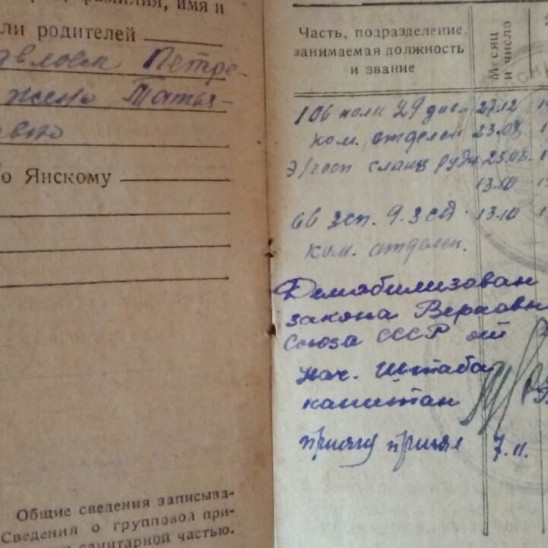 фамилия, имя и
ли родителей
Петро-
жена Татья-
вна
о Янскому
Общие сведения записыва-
Сведения о групповой при-
санитарной частью.
Часть, подразделение,
занимаемая должность
и звание
Месяц
и число
106 полк 29 див 27.12
ком. отделен 23.08
Э/госп сланц руд 23.08
13.10
66 зсп. 9. зсд. 13.10
ком. отделен.
Демобилизован
закона Верховн
Союза СССР от
Нач. Штаба
капитан
присягу принял 7.11.